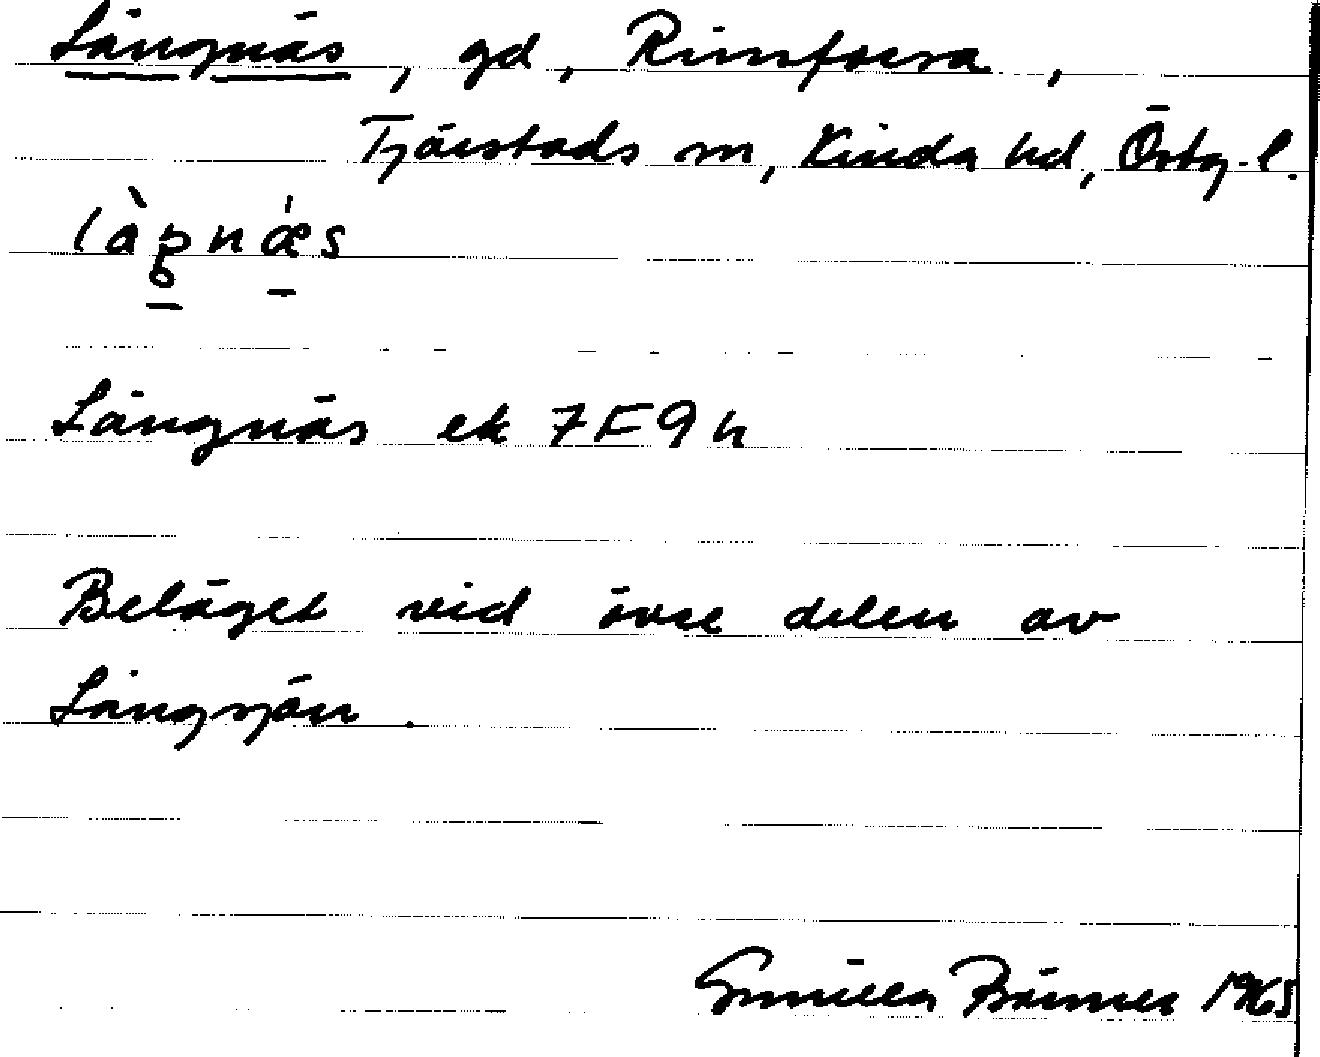 Långnäs, gd, Rimforsa,
Tjärstads sn, Kinda hd, Östg. l.
Långnäs ek 7F9h
Beläget vid övre delen av
Långsjön.
Gunilla 1965